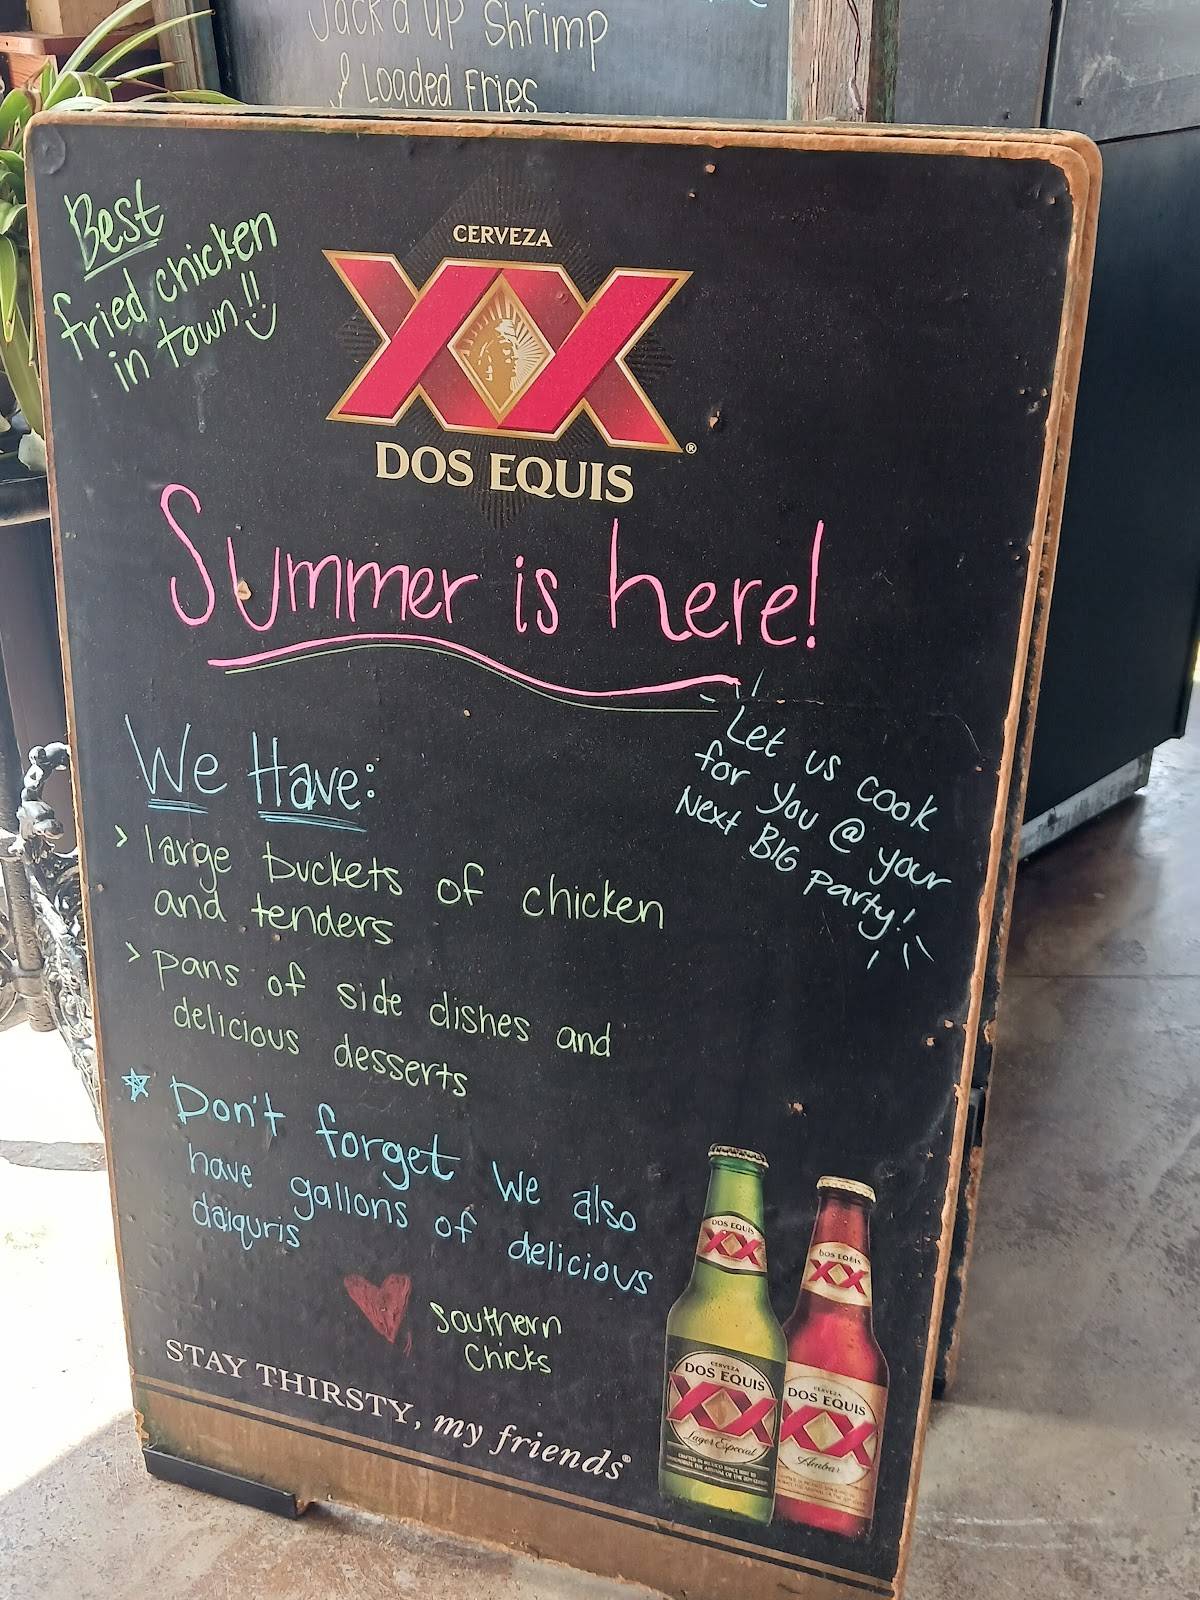 Jack'd up Shrimp
& Loaded Fries
Best
fried chicken
in town!!
CERVEZA
XX
DOS EQUIS
Summer is here!
Let us cook
for you @ your
Next BIG party!
We Have:
> large buckets of chicken
and tenders
> pans of side dishes and
delicious desserts
Don't forget We also
have gallons of delicious
daiquris
Southern
Chicks
STAY THIRSTY, my friends®
DOS EQUIS
XX
CERVEZA
DOS EQUIS
XX
Lager Especial
DOS EQUIS
XX
CERVEZA
DOS EQUIS
XX
Ambar